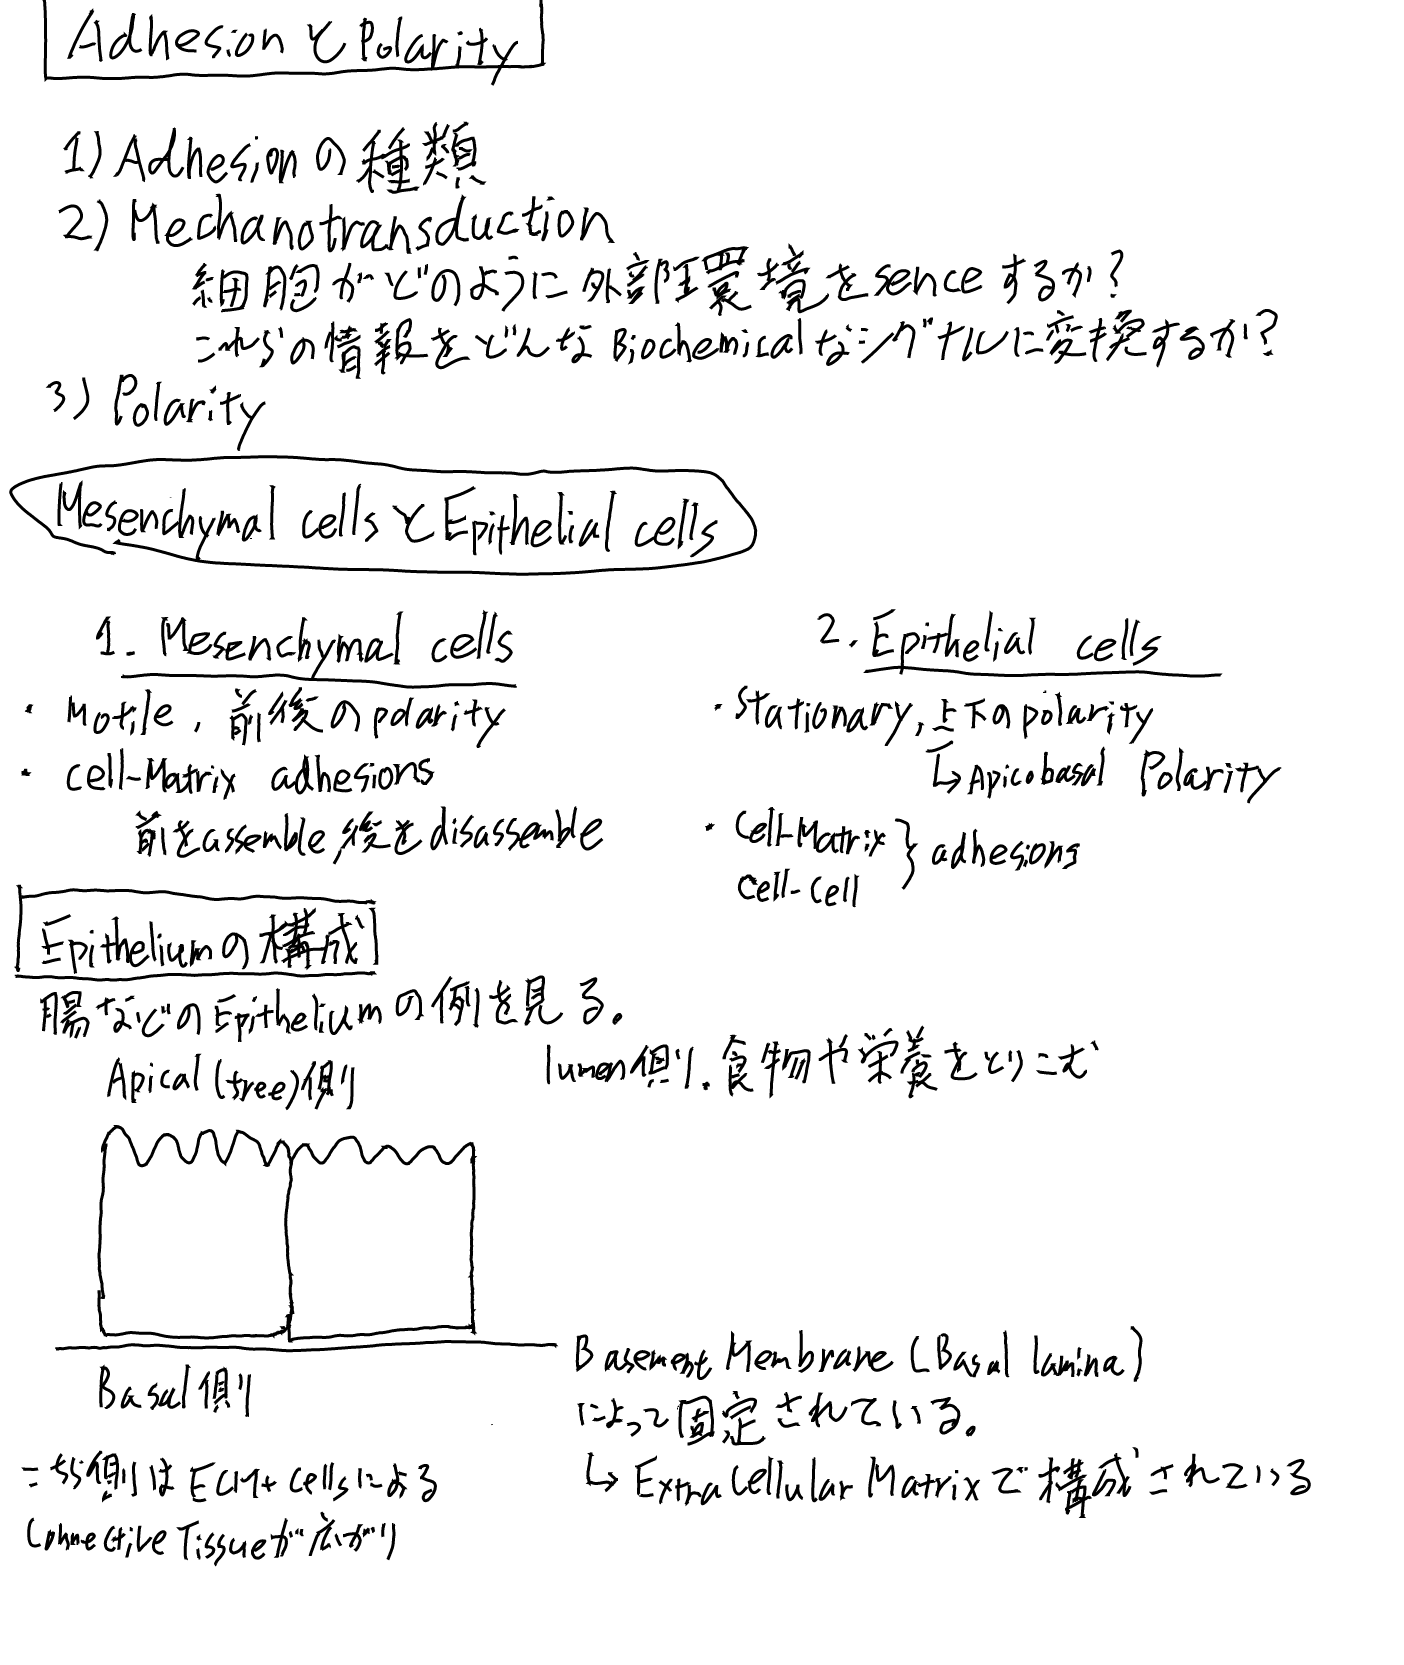 Adhesion と Polarity
1) Adhesion の 種類
2) Mechanotransduction
細胞がどのように外部環境をsenceするか?
これらの情報をどんなBiochemicalなシグナルに変換するか?
3) Polarity
Mesenchymal cells と Epithelial cells
1. Mesenchymal cells
・Motile, 前後のpolarity
・cell-Matrix adhesions
前をassemble,後をdisassemble
2. Epithelial cells
・Stationary, 上下のpolarity
↳ Apicobasal Polarity
・Cell-Matrix } adhesions
Cell-Cell
Epitheliumの構成
腸などのEpitheliumの例を見る。
Apical (free)側
lumen側. 食物や栄養をとりこむ
Basal側
Basement Membrane (Basal lamina)
によって固定されている。
↳ Extra Cellular Matrixで構成されている
こちら側はECM+cellsによる
Connective Tissueが広がり